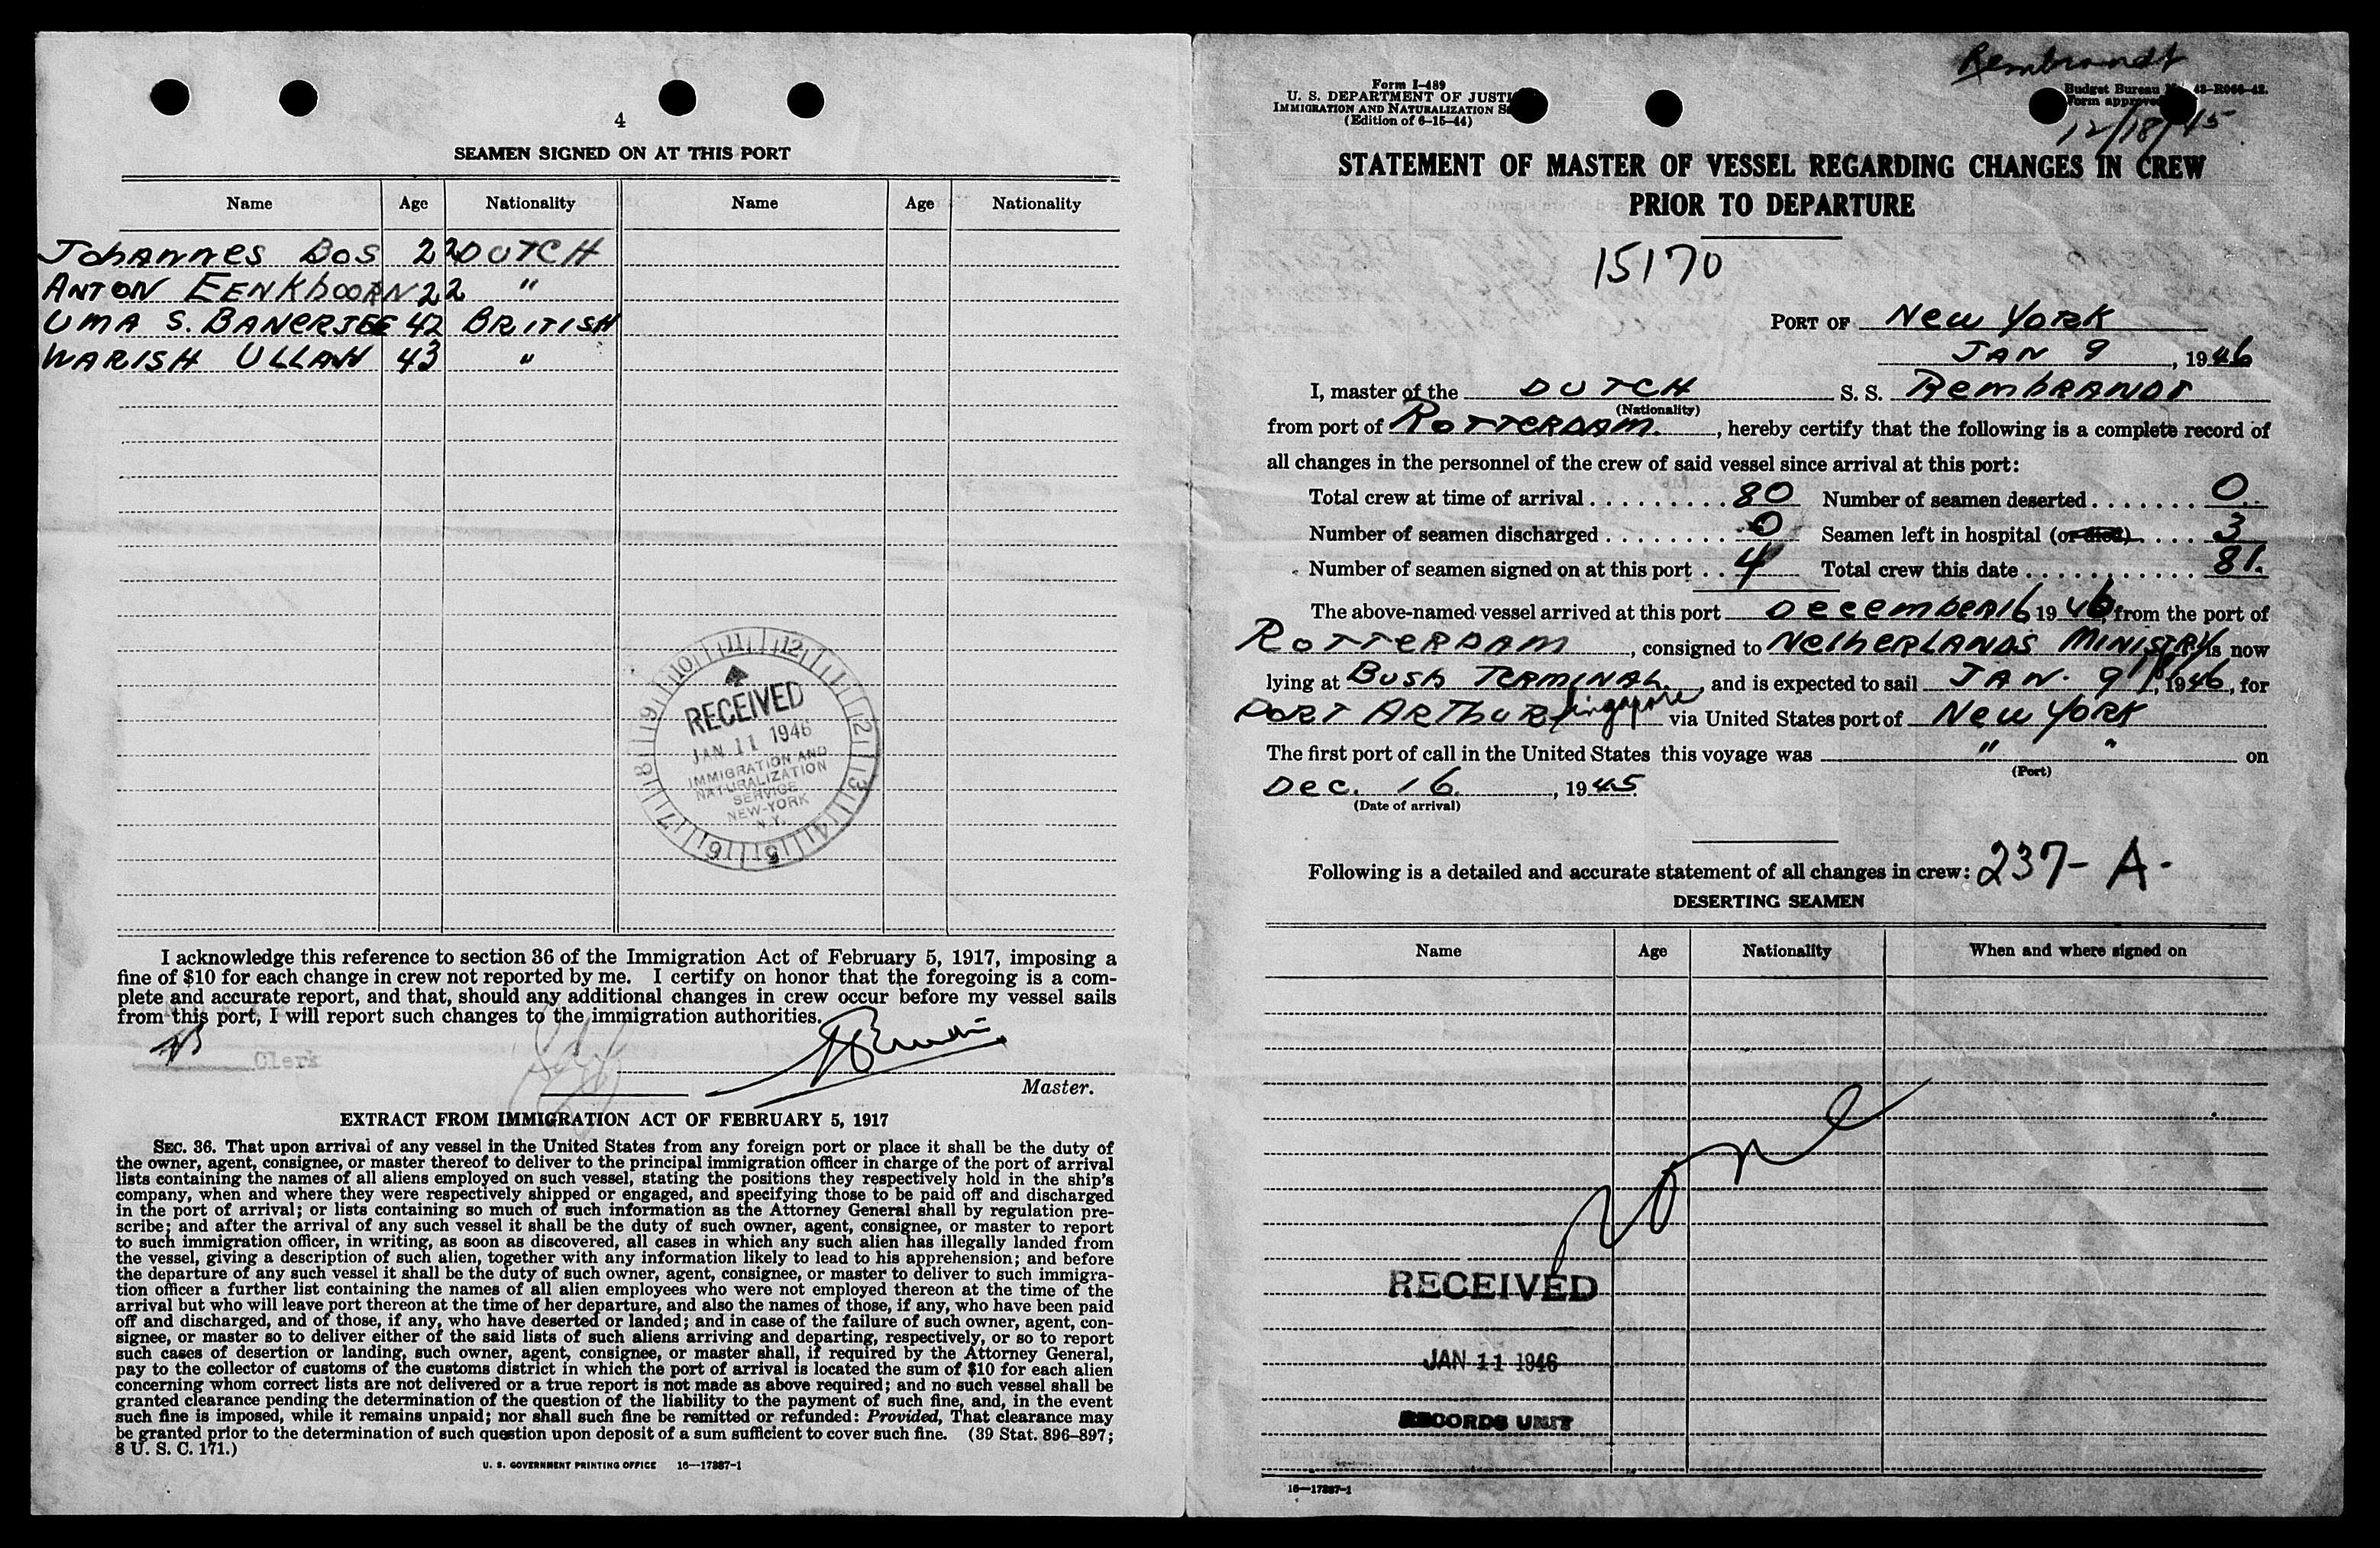 4
SEAMEN SIGNED ON AT THIS PORT
Name Age Nationality Name Age Nationality
Johannes Bos 22 DUTCH
ANTON EENKhOORN 22 "
UMA S. BANERJEE 42 BRITISH
WARISH ULLAH 43 "
RECEIVED
JAN 11 1946
IMMIGRATION AND
NATURALIZATION
SERVICE
NEW-YORK
N.Y.
I acknowledge this reference to section 36 of the Immigration Act of February 5, 1917, imposing a
fine of $10 for each change in crew not reported by me. I certify on honor that the foregoing is a com-
plete and accurate report, and that, should any additional changes in crew occur before my vessel sails
from this port, I will report such changes to the immigration authorities.
Clerk
Master.
EXTRACT FROM IMMIGRATION ACT OF FEBRUARY 5, 1917
SEC. 36. That upon arrival of any vessel in the United States from any foreign port or place it shall be the duty of
the owner, agent, consignee, or master thereof to deliver to the principal immigration officer in charge of the port of arrival
lists containing the names of all aliens employed on such vessel, stating the positions they respectively hold in the ship's
company, when and where they were respectively shipped or engaged, and specifying those to be paid off and discharged
in the port of arrival; or lists containing so much of such information as the Attorney General shall by regulation pre-
scribe; and after the arrival of any such vessel it shall be the duty of such owner, agent, consignee, or master to report
to such immigration officer, in writing, as soon as discovered, all cases in which any such alien has illegally landed from
the vessel, giving a description of such alien, together with any information likely to lead to his apprehension; and before
the departure of any such vessel it shall be the duty of such owner, agent, consignee, or master to deliver to such immigra-
tion officer a further list containing the names of all alien employees who were not employed thereon at the time of the
arrival but who will leave port thereon at the time of her departure, and also the names of those, if any, who have been paid
off and discharged, and of those, if any, who have deserted or landed; and in case of the failure of such owner, agent, con-
signee, or master so to deliver either of the said lists of such aliens arriving and departing, respectively, or so to report
such cases of desertion or landing, such owner, agent, consignee, or master shall, if required by the Attorney General,
pay to the collector of customs of the customs district in which the port of arrival is located the sum of $10 for each alien
concerning whom correct lists are not delivered or a true report is not made as above required; and no such vessel shall be
granted clearance pending the determination of the question of the liability to the payment of such fine, and, in the event
such fine is imposed, while it remains unpaid; nor shall such fine be remitted or refunded: Provided, That clearance may
be granted prior to the determination of such question upon deposit of a sum sufficient to cover such fine. (39 Stat. 896-897;
8 U. S. C. 171.)
U. S. GOVERNMENT PRINTING OFFICE 16—17887-1
Rembrandt
Form I-489
U. S. DEPARTMENT OF JUSTI
IMMIGRATION AND NATURALIZATION S
(Edition of 6-15-44)
Budget Bureau 43-R066-42.
Form approved
12/18/45
STATEMENT OF MASTER OF VESSEL REGARDING CHANGES IN CREW
PRIOR TO DEPARTURE
15170
PORT OF New YORK
JAN 9, 1946
I, master of the DUTCH S. S. RembRANDT
(Nationality)
from port of ROTTERDAM., hereby certify that the following is a complete record of
all changes in the personnel of the crew of said vessel since arrival at this port:
Total crew at time of arrival 80 Number of seamen deserted 0
Number of seamen discharged 0 Seamen left in hospital (or died) 3
Number of seamen signed on at this port 4 Total crew this date 81.
The above-named vessel arrived at this port December 16 1946, from the port of
ROTTERDAM, consigned to NetherLANDS MINISTRY is now
lying at BUSh TERMINAL., and is expected to sail JAN. 9, 1946, for
PORT ARThUR/Singapore via United States port of New YORK
The first port of call in the United States this voyage was " " on
(Port)
Dec. 16, 1945
(Date of arrival)
Following is a detailed and accurate statement of all changes in crew: 237-A-
DESERTING SEAMEN
Name Age Nationality When and where signed on
None
RECEIVED
JAN 11 1946
RECORDS UNIT
16—17887-1